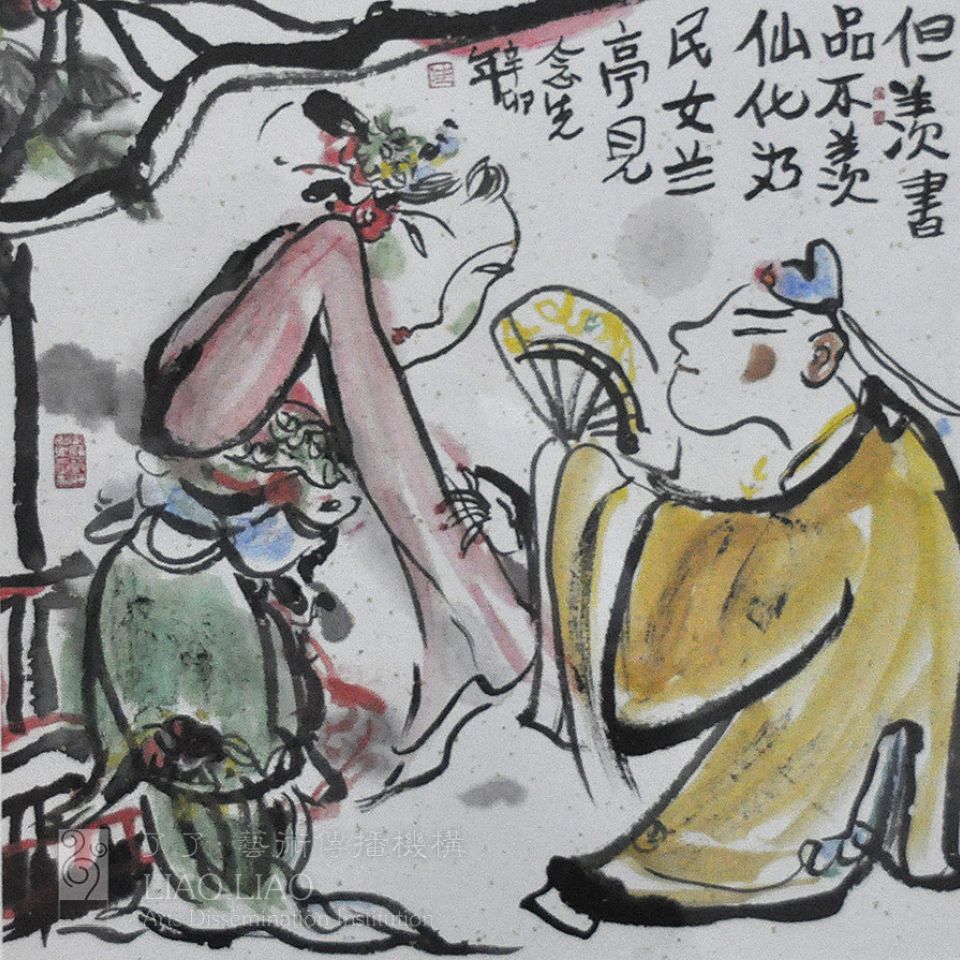 但羡書
品不羡
仙化为
民女兰
亭见
念先
辛卯
年
了了·藝術傳播機構
LIAO LIAO
Arts Dissemination Institution